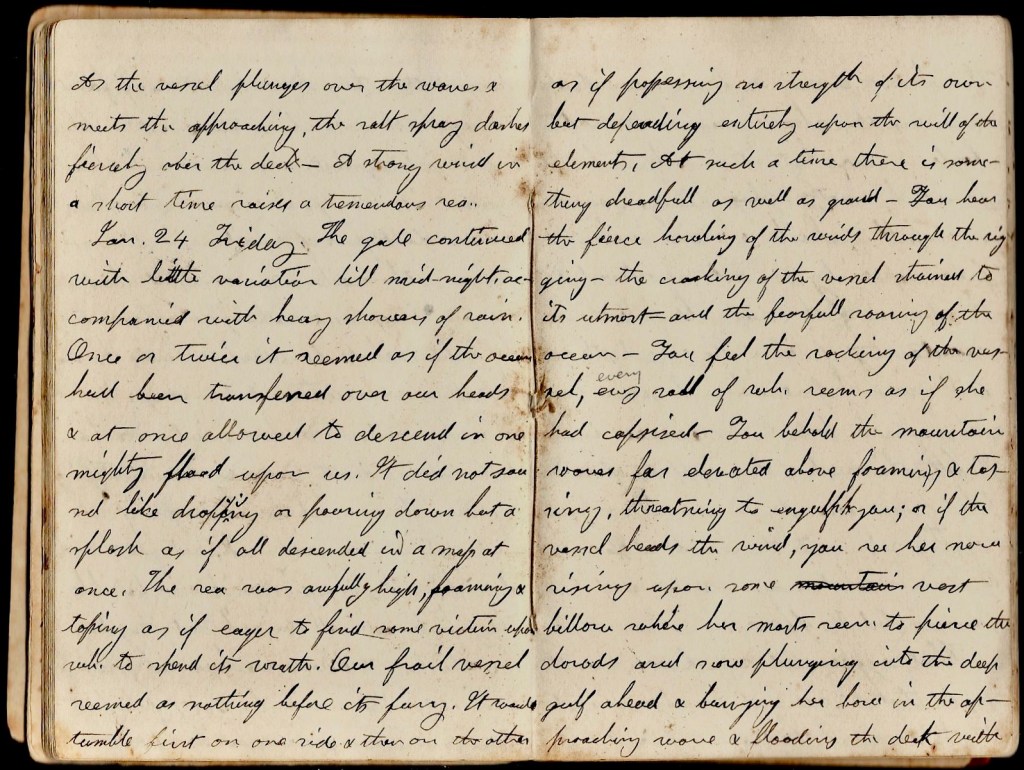 As the vessel plunges over the waves &
meets the approaching, the salt spray dashes
fiercely over the deck — A strong wind in
a short time raises a tremendous sea..
Jan. 24 Friday. The gale continued
with little variation till mid-night, ac-
companied with heavy showers of rain.
Once or twice it seemed as if the ocean
had been transferred over our heads
& at once allowed to descend in one
mighty flood upon us. It did not sou
nd like dropping or pouring down but a
splash as if all descended in a mass at
once. The sea was awfully high, foaming &
tossing as if eager to find some victim upon
wh. to spend its wrath. Our frail vessel
seemed as nothing before its fury. It would
tumble first on one side & then on the other
as if possessing no strength of its own
but depending entirely upon the will of the
elements. At such a time there is some-
thing dreadfull as well as grand — You hear
the fierce howling of the winds through the rig
ging — the creaking of the vessel strained to
its utmost — and the fearfull roaring of the
ocean — You feel the rocking of the ves-
every
sel, evry roll of wh. seems as if she
had capsised — You behold the mountain
waves far elevated above foaming & tos-
sing, threatning to engulph you; or if the
vessel heads the wind, you see her now
rising upon some mountain vast
billow where her masts seem to pierce the
clouds and now plunging into the deep
gulf ahead & burying her bow in the ap-
proaching wave & flooding the deck with